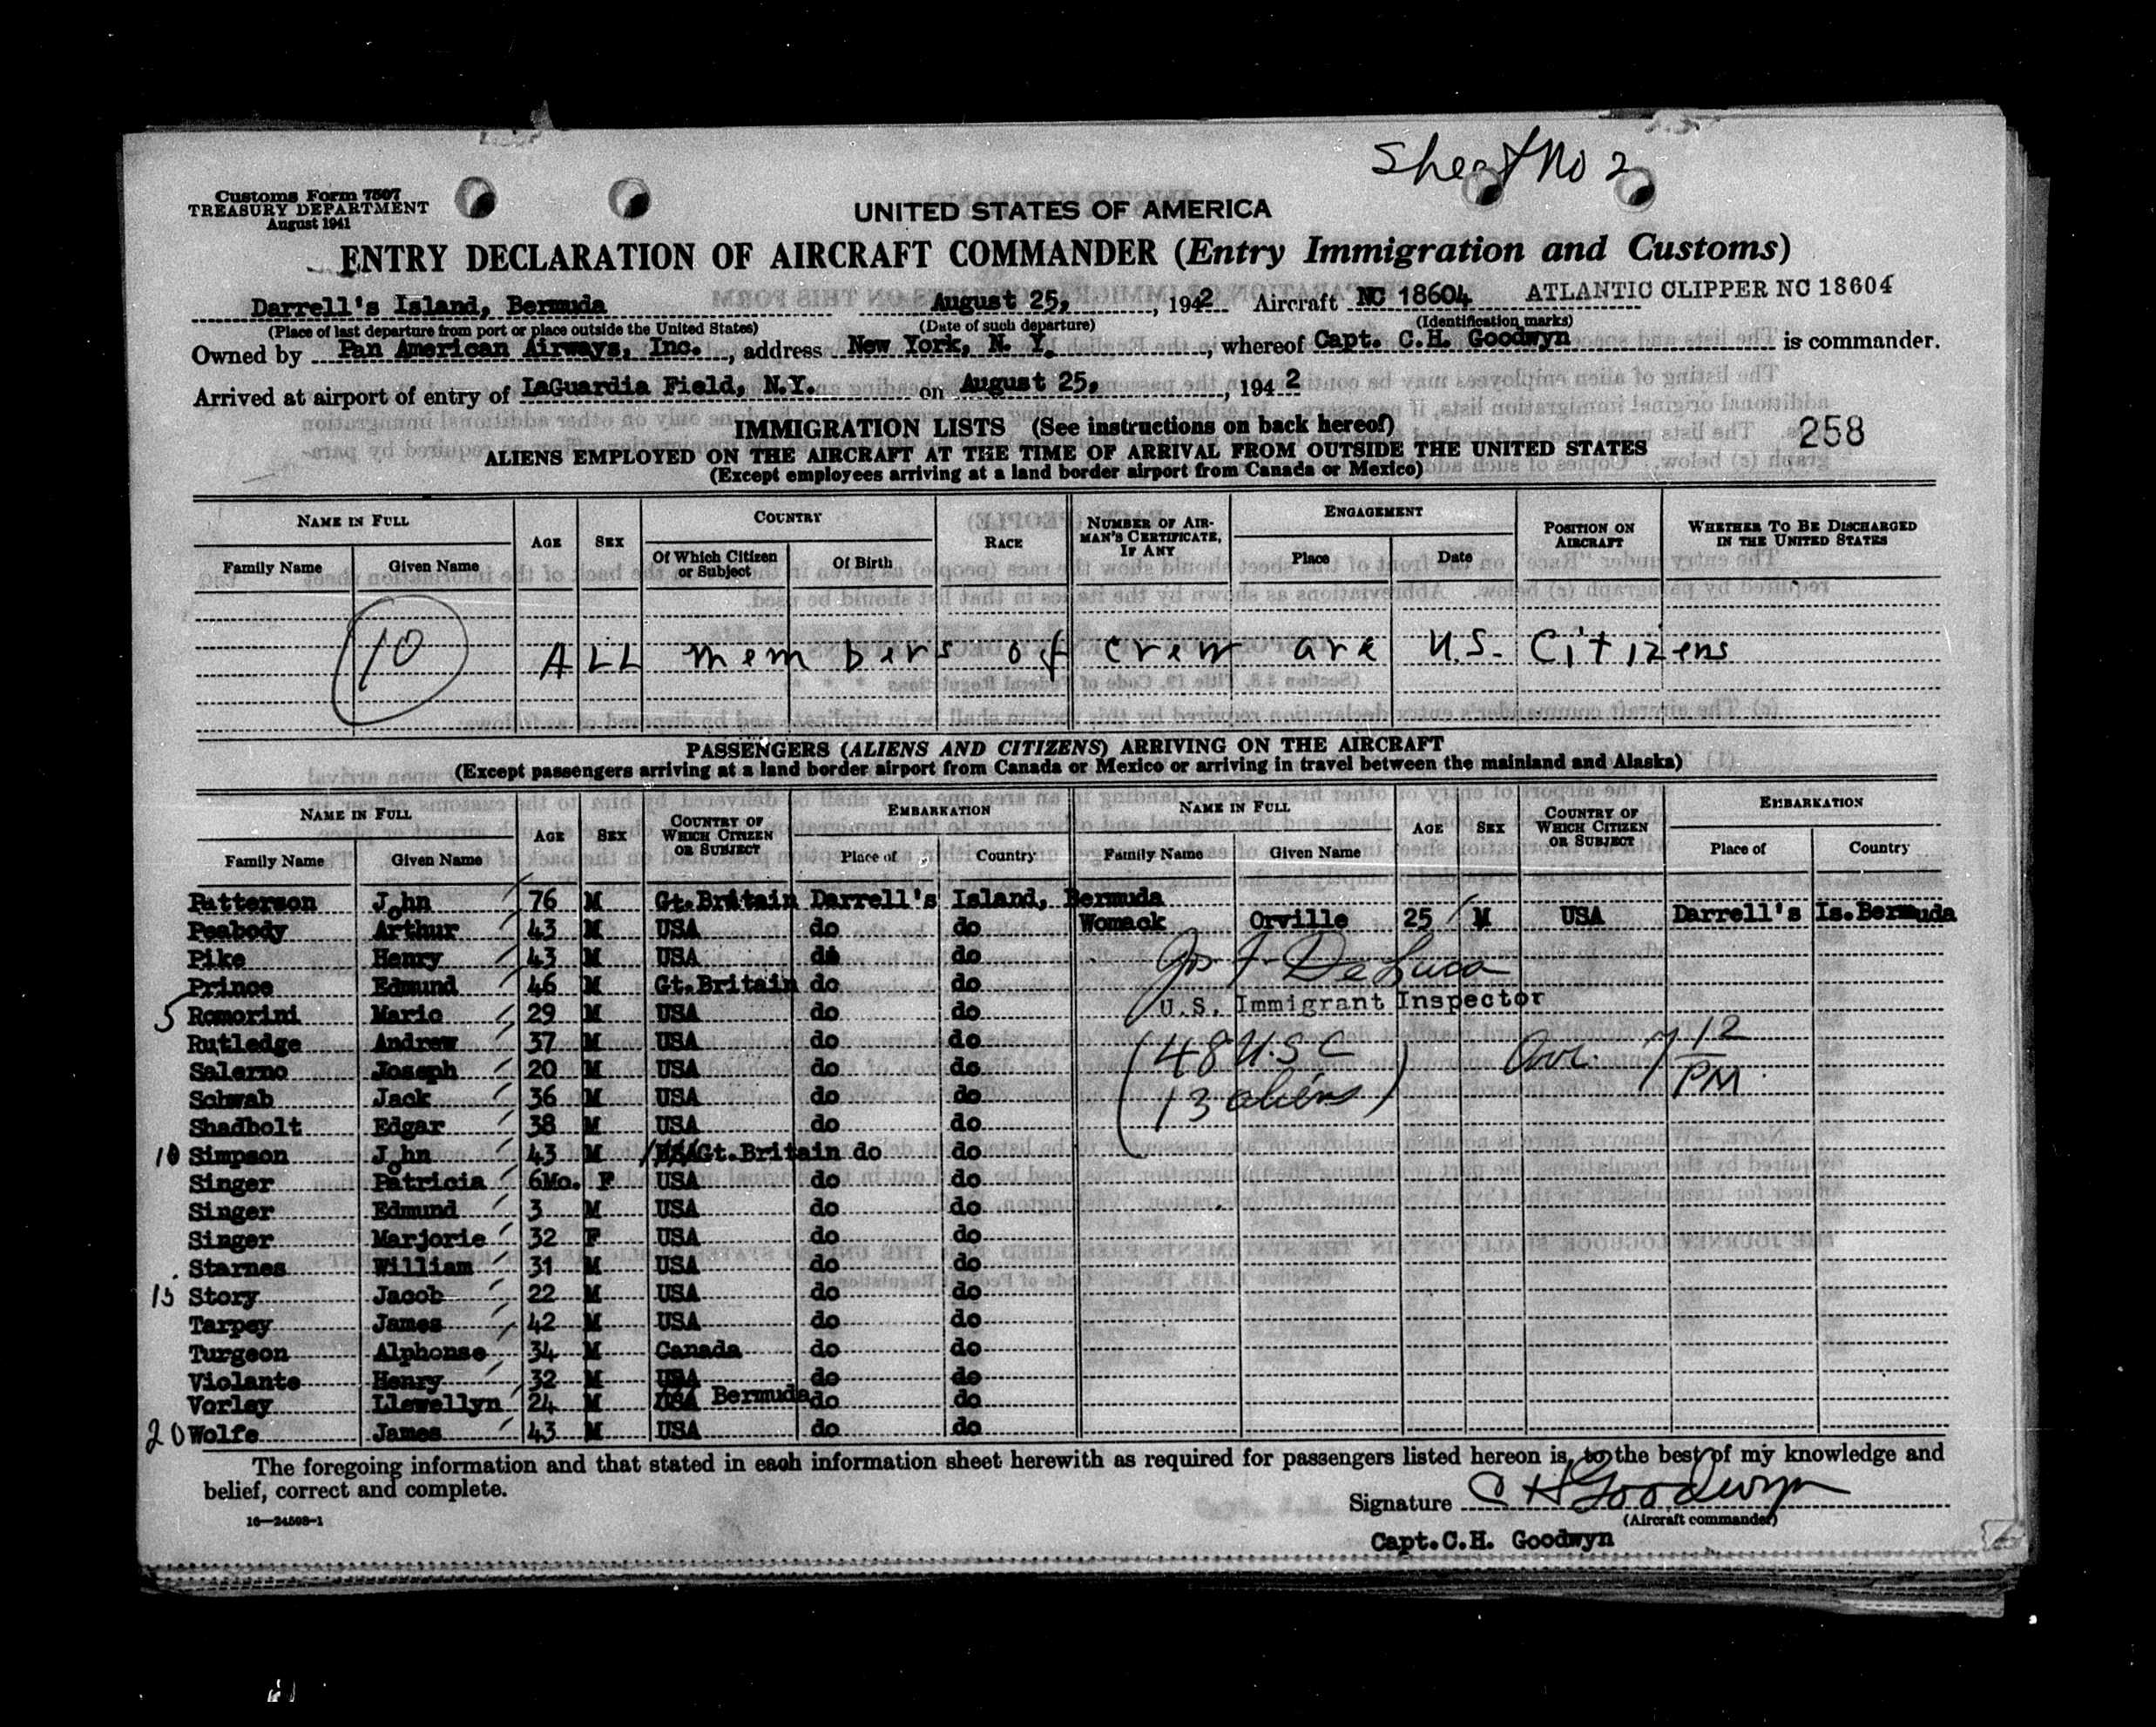 Sheet No 2
Customs Form 7507
TREASURY DEPARTMENT
August 1941
UNITED STATES OF AMERICA
ENTRY DECLARATION OF AIRCRAFT COMMANDER (Entry Immigration and Customs)
Darrell's Island, Bermuda August 25, 1942 Aircraft NC 18604 ATLANTIC CLIPPER NC 18604
(Place of last departure from port or place outside the United States) (Date of such departure) (Identification marks)
Owned by Pan American Airways, Inc. , address New York, N. Y. , whereof Capt. C.H. Goodwyn is commander.
Arrived at airport of entry of LaGuardia Field, N.Y. on August 25, , 1942
258
IMMIGRATION LISTS (See instructions on back hereof)
ALIENS EMPLOYED ON THE AIRCRAFT AT THE TIME OF ARRIVAL FROM OUTSIDE THE UNITED STATES
(Except employees arriving at a land border airport from Canada or Mexico)
NAME IN FULL AGE SEX COUNTRY RACE NUMBER OF AIRMAN'S CERTIFICATE, IF ANY ENGAGEMENT POSITION ON AIRCRAFT WHETHER TO BE DISCHARGED IN THE UNITED STATES
Family Name Given Name Of Which Citizen or Subject Of Birth Place Date
10 ALL members of crew are U.S. Citizens
PASSENGERS (ALIENS AND CITIZENS) ARRIVING ON THE AIRCRAFT
(Except passengers arriving at a land border airport from Canada or Mexico or arriving in travel between the mainland and Alaska)
NAME IN FULL AGE SEX COUNTRY OF WHICH CITIZEN OR SUBJECT EMBARKATION NAME IN FULL AGE SEX COUNTRY OF WHICH CITIZEN OR SUBJECT EMBARKATION
Family Name Given Name Place of Country Family Name Given Name Place of Country
Patterson John 76 M Gt.Britain Darrell's Island, Bermuda
Womack Orville 25 M USA Darrell's Is.Bermuda
Peabody Arthur 43 M USA do do
Pike Henry 43 M USA do do
Prince Edmund 46 M Gt.Britain do do
5 Romorini Mario 29 M USA do do
Rutledge Andrew 37 M USA do do
Salerno Joseph 20 M USA do do
Schwab Jack 36 M USA do do
Shadbolt Edgar 38 M USA do do
10 Simpson John 43 M USA Gt.Britain do do
Singer Patricia 6Mo. F USA do do
Singer Edmund 3 M USA do do
Singer Marjorie 32 F USA do do
Starnes William 31 M USA do do
15 Story Jacob 22 M USA do do
Tarpey James 42 M USA do do
Turgeon Alphonse 34 M Canada do do
Violante Henry 32 M USA do do
Vorley Llewellyn 24 M USA Bermuda do do
20 Wolfe James 43 M USA do do
Jos F. DeLuca
U.S. Immigrant Inspector
(48 U.S.C
13 aliens)
Arr. 7 12 PM
The foregoing information and that stated in each information sheet herewith as required for passengers listed hereon is, to the best of my knowledge and
belief, correct and complete.
Signature C H Goodwyn
16—24598-1
(Aircraft commander)
Capt.C.H. Goodwyn